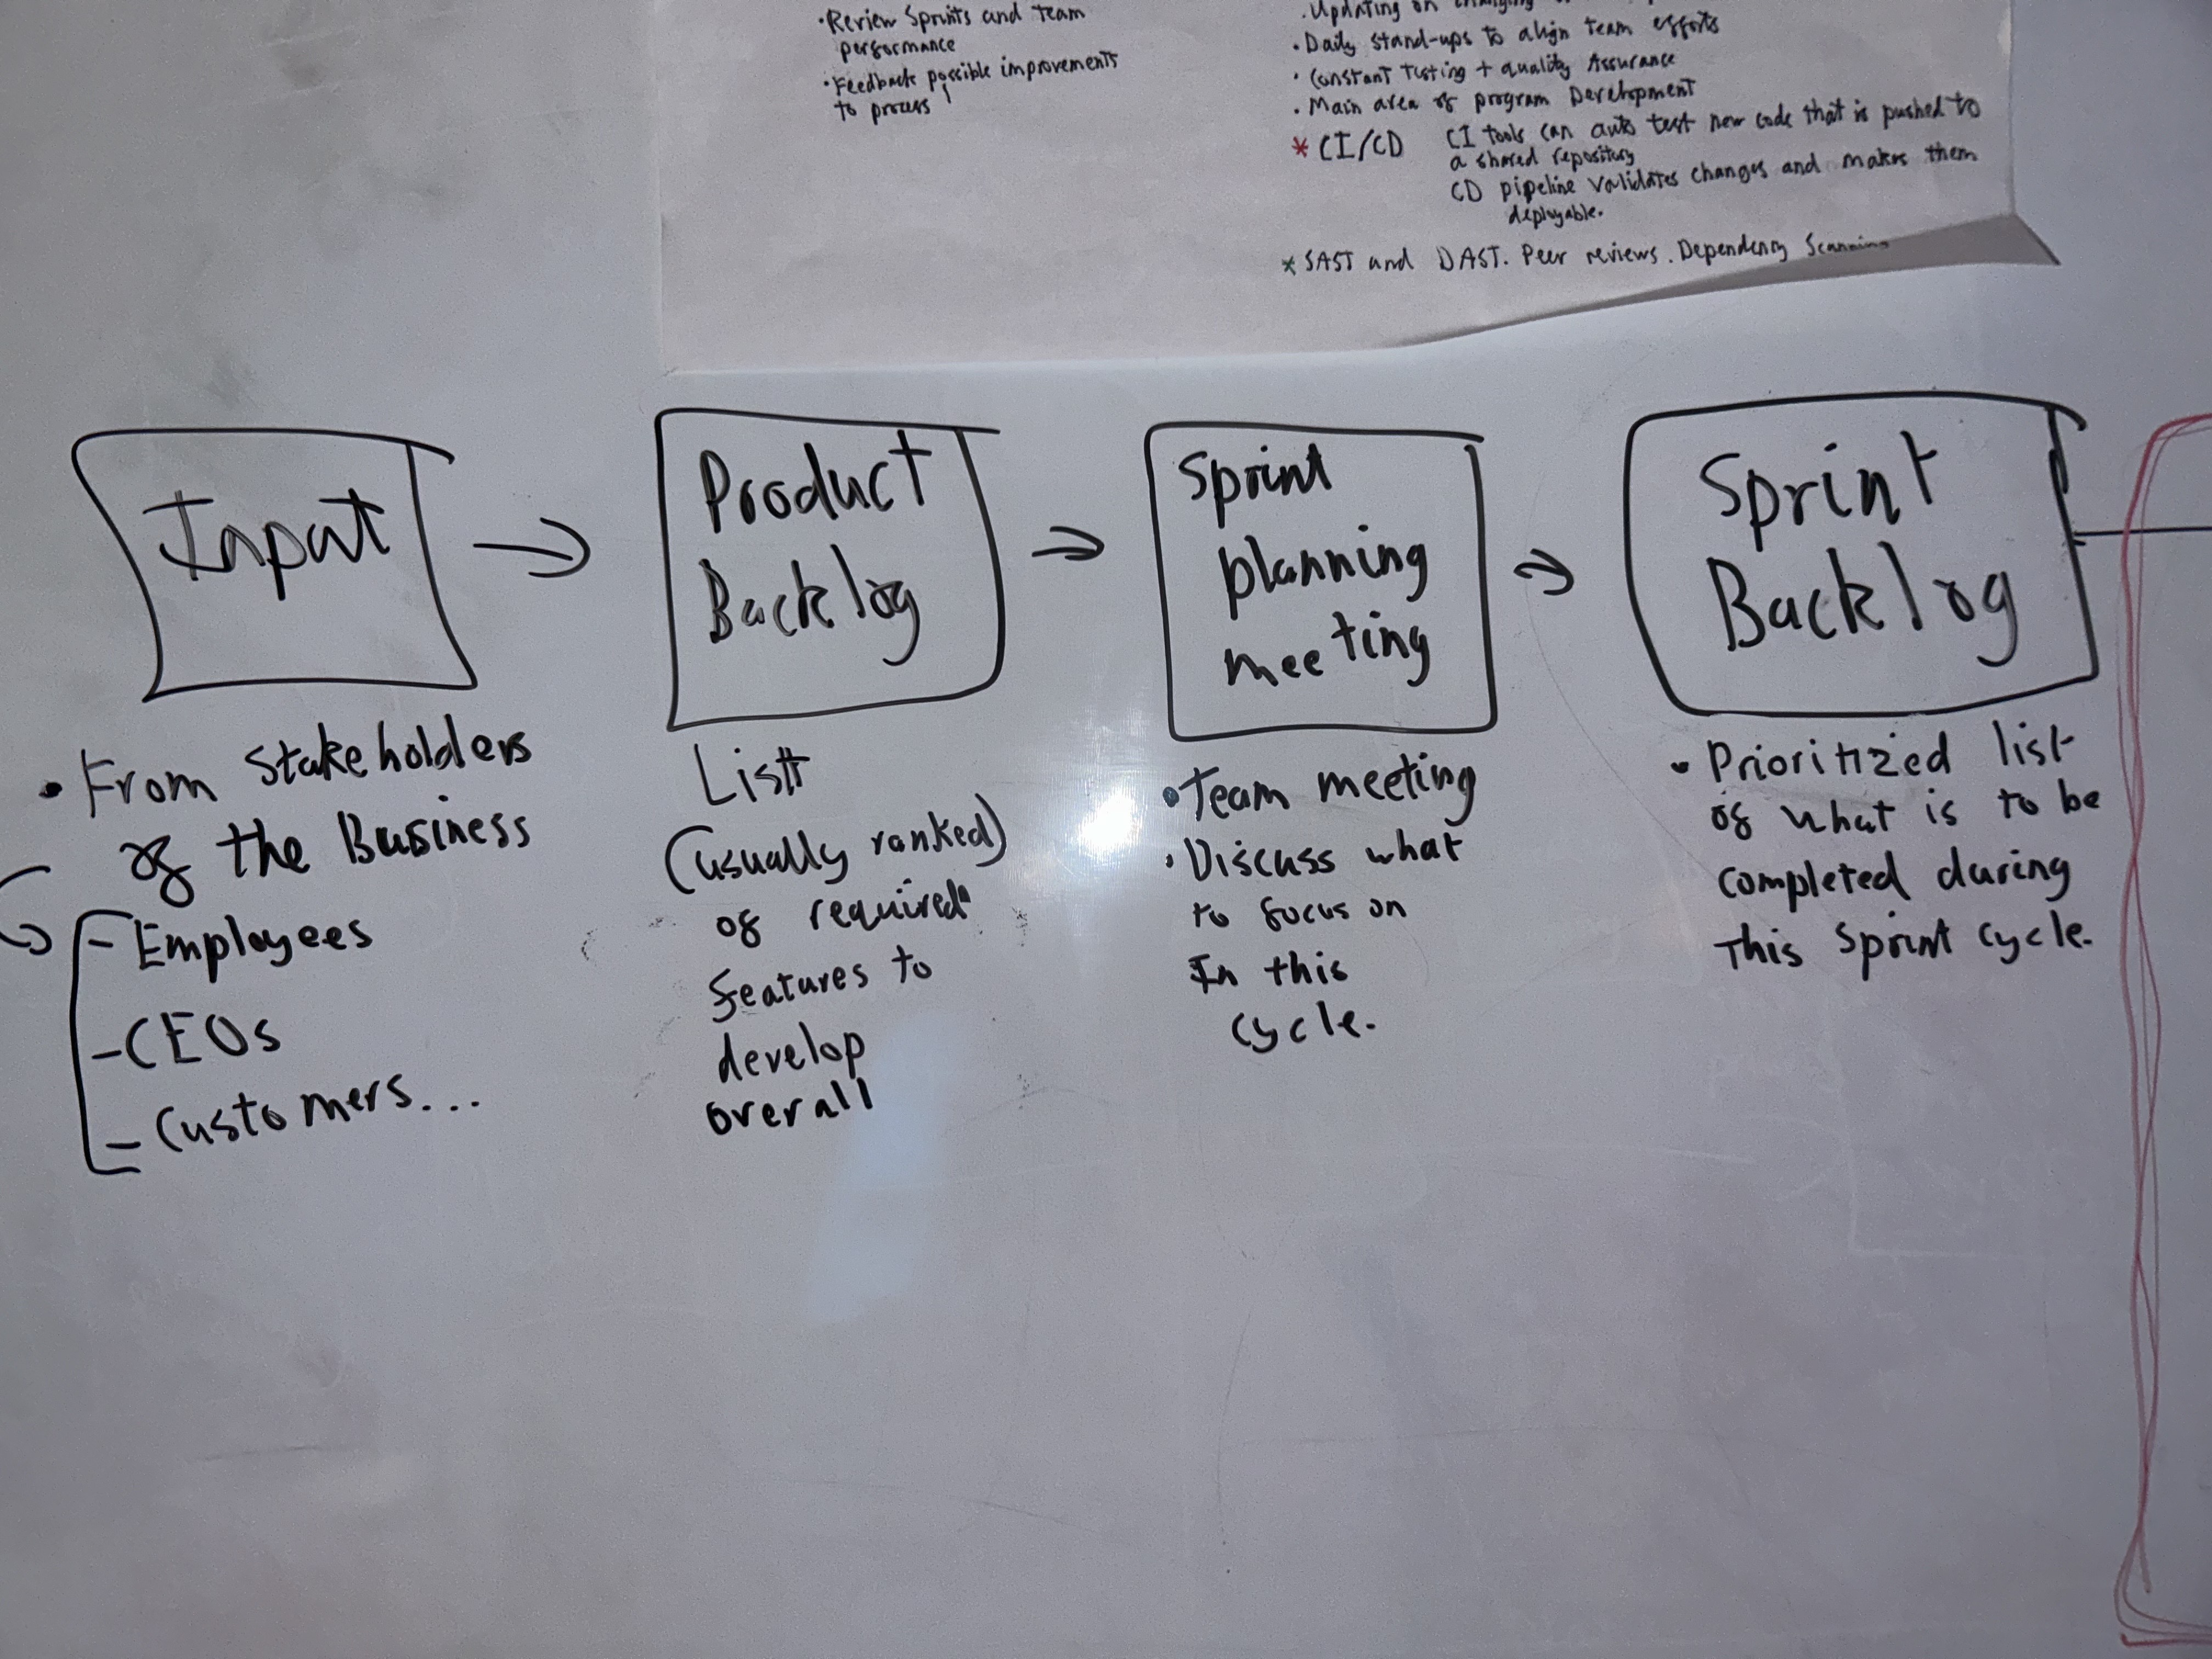 ·Review Sprints and Team
performance
·Feedback possible improvements
to process
·Updating on changing
·Daily stand-ups to align team efforts
·Constant Testing + quality Assurance
·Main area of program Development
* CI/CD CI tools can auto test new code that is pushed to
a shared repository
CD pipeline validates changes and makes them
deployable.
* SAST and DAST. Peer reviews. Dependency Scanning
Input
→
Product
Backlog
→
Sprint
planning
meeting
→
Sprint
Backlog
• From Stakeholders
of the Business
- Employees
- CEOs
- Customers...
List
(usually ranked)
of required
features to
develop
overall
• Team meeting
• Discuss what
to focus on
In this
cycle.
• Prioritized list
of what is to be
completed during
This Sprint cycle.